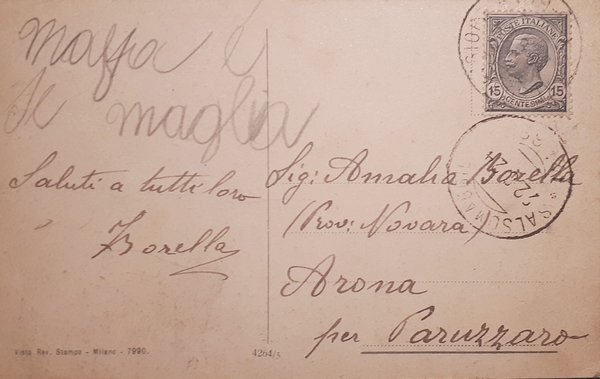 maffa e
Il maglia
Saluti a tutti loro
Borella
Vista Rev. Stampa - Milano - 7990.
4264/5
POSTE ITALIANE
15 15
CENTESIMI
SALSOMAG
Sig: Amalia Borella
(Prov: Novara)
Arona
per Paruzzaro